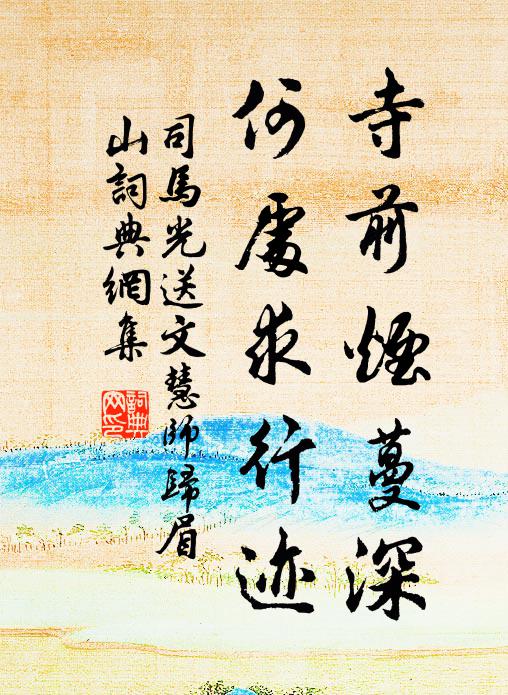 寺前煙蔓深
何處求行迹
司馬光送文慧師歸眉
山詞典網集
詞典
网印